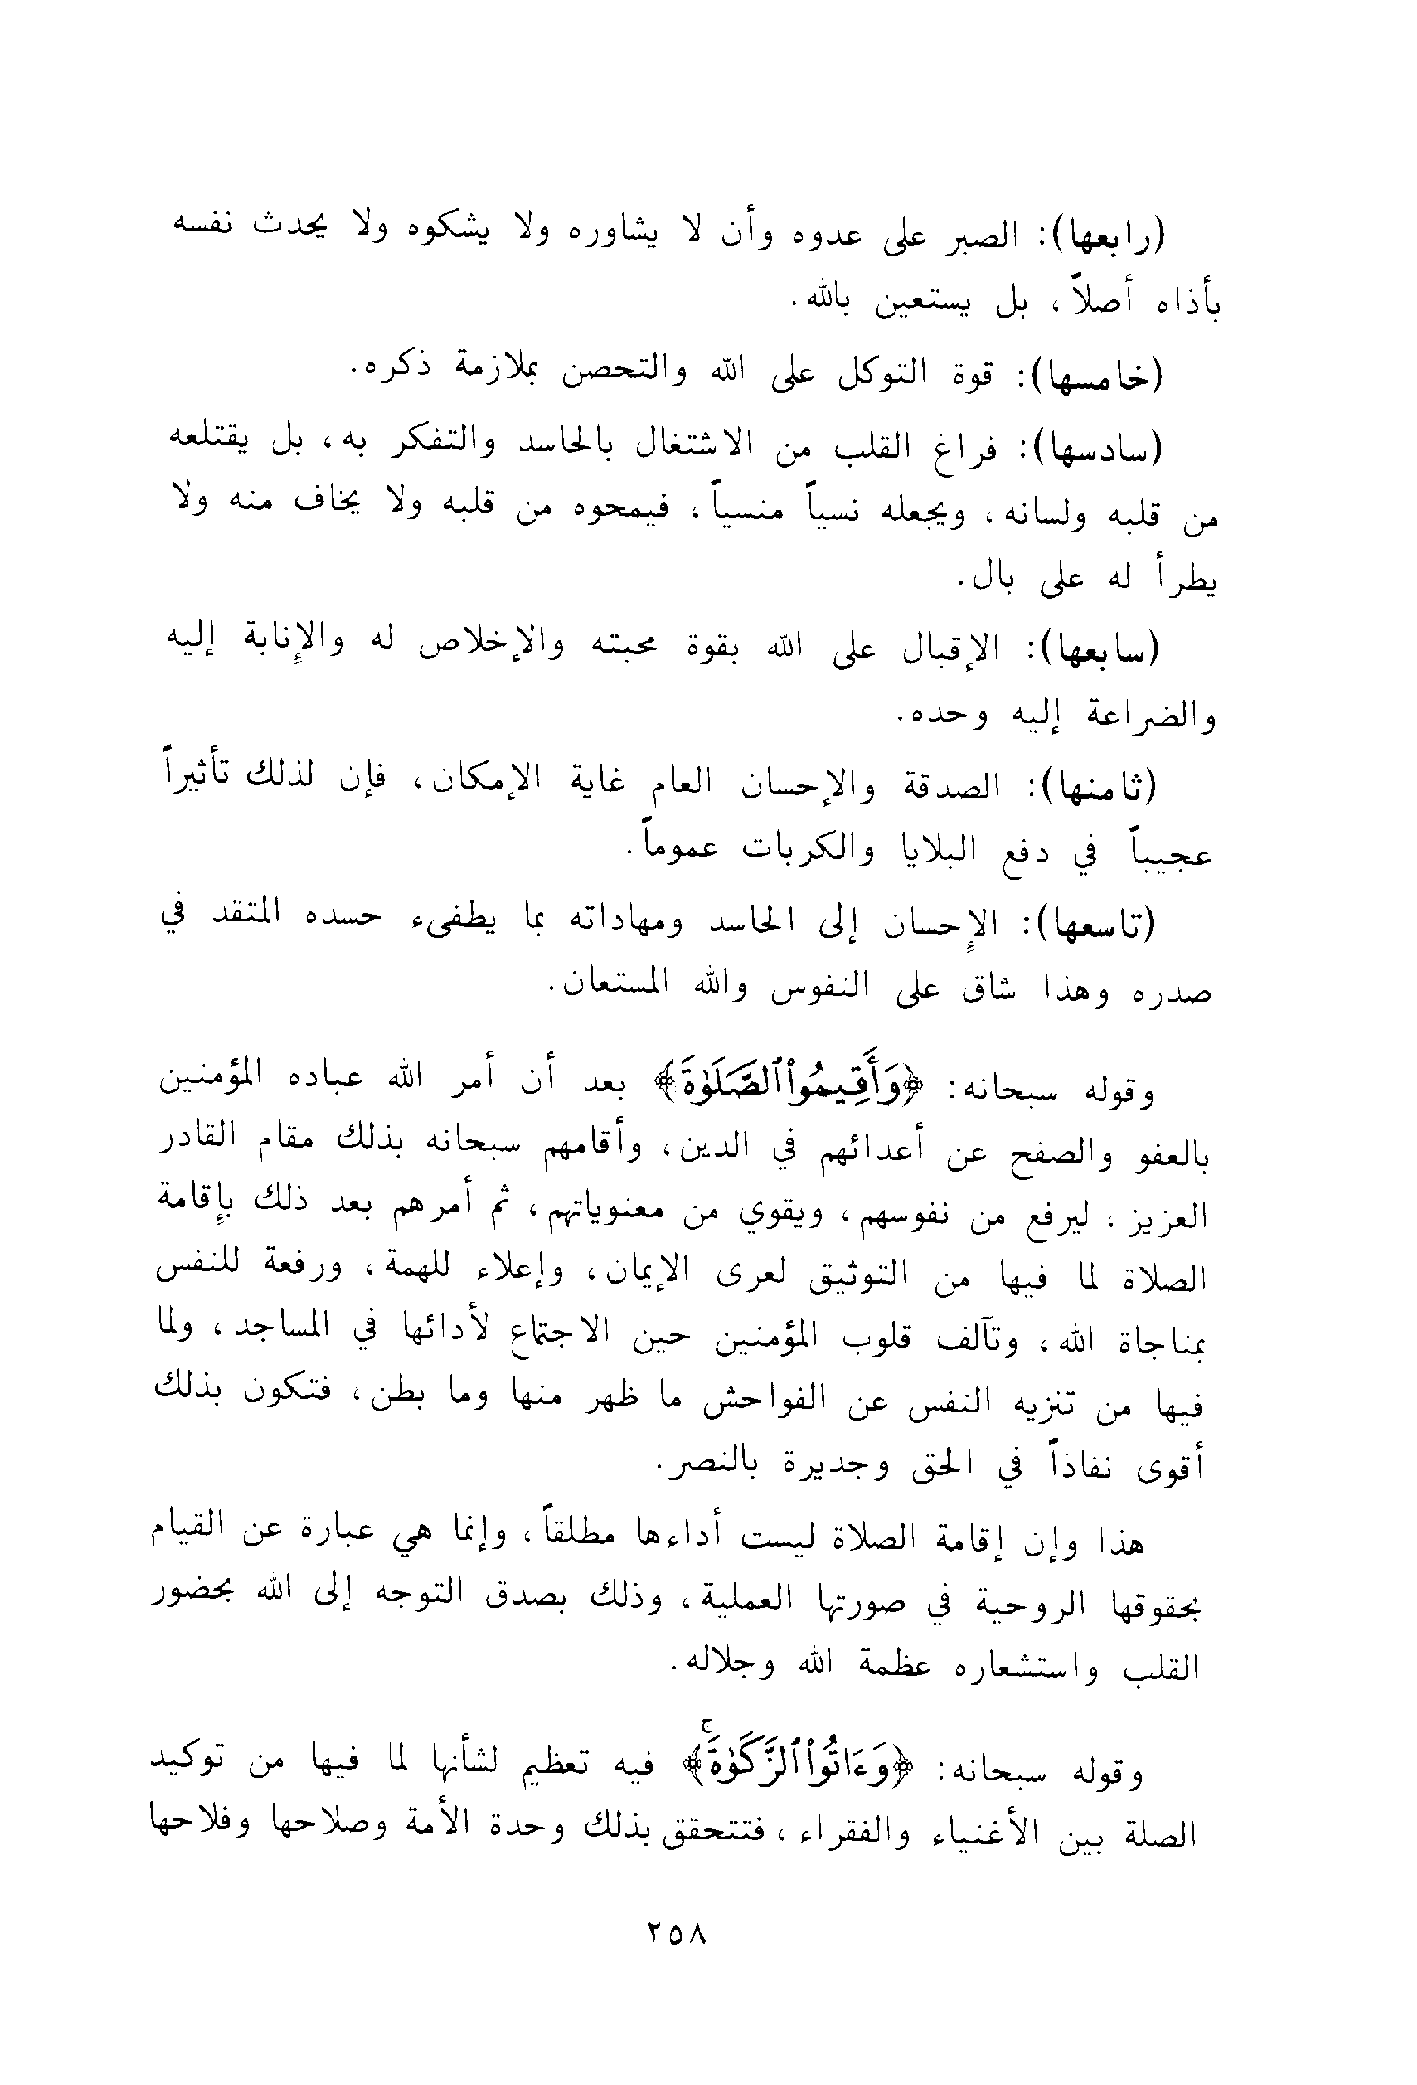 (رابعها): الصبر على عدوه وأن لا يشاوره ولا يشكوه ولا يحدث نفسه
بأذاه أصلاً، بل يستعين بالله.
(خامسها): قوة التوكل على الله والتحصن بملازمة ذكره.
(سادسها): فراغ القلب من الاشتغال بالحاسد والتفكر به، بل يقتلعه
من قلبه ولسانه، ويجعله نسياً منسياً، فيمحوه من قلبه ولا يخاف منه ولا
يطرأ له على بال.
(سابعها): الإقبال على الله بقوة محبته والإخلاص له والإنابة إليه
والضراعة إليه وحده.
(ثامنها): الصدقة والإحسان العام غاية الإمكان، فإن لذلك تأثيراً
عجيباً في دفع البلايا والكربات عموماً.
(تاسعها): الإحسان إلى الحاسد ومهاداته بما يطفىء حسده المتقد في
صدره وهذا شاق على النفوس والله المستعان.
وقوله سبحانه: ﴿وَأَقِيمُوا۟ ٱلصَّلَوٰةَ﴾ بعد أن أمر الله عباده المؤمنين
بالعفو والصفح عن أعدائهم في الدين، وأقامهم سبحانه بذلك مقام القادر
العزيز، ليرفع من نفوسهم، ويقوي من معنوياتهم، ثم أمرهم بعد ذلك بإقامة
الصلاة لما فيها من التوثيق لعرى الإيمان، وإعلاء للهمة، ورفعة للنفس
بمناجاة الله، وتآلف قلوب المؤمنين حين الاجتماع لأدائها في المساجد، ولما
فيها من تنزيه النفس عن الفواحش ما ظهر منها وما بطن، فتكون بذلك
أقوى نفاذاً في الحق وجديرة بالنصر.
هذا وإن إقامة الصلاة ليست أداءها مطلقاً، وإنما هي عبارة عن القيام
بحقوقها الروحية في صورتها العملية، وذلك بصدق التوجه إلى الله بحضور
القلب واستشعاره عظمة الله وجلاله.
وقوله سبحانه: ﴿وَءَاتُوا۟ ٱلزَّكَوٰةَۚ﴾ فيه تعظيم لشأنها لما فيها من توكيد
الصلة بين الأغنياء والفقراء، فتتحقق بذلك وحدة الأمة وصلاحها وفلاحها
٢٥٨